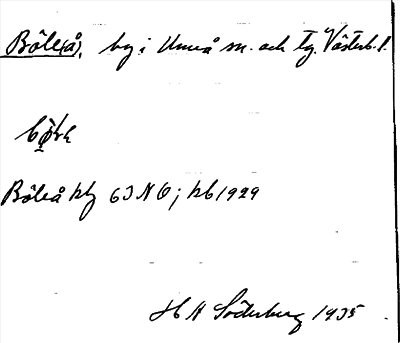 Böle(å), by i Umeå sn. och tg. Västerb. l.
Böleå ktg 63 NO; kb 1929
H A Söderberg 1935